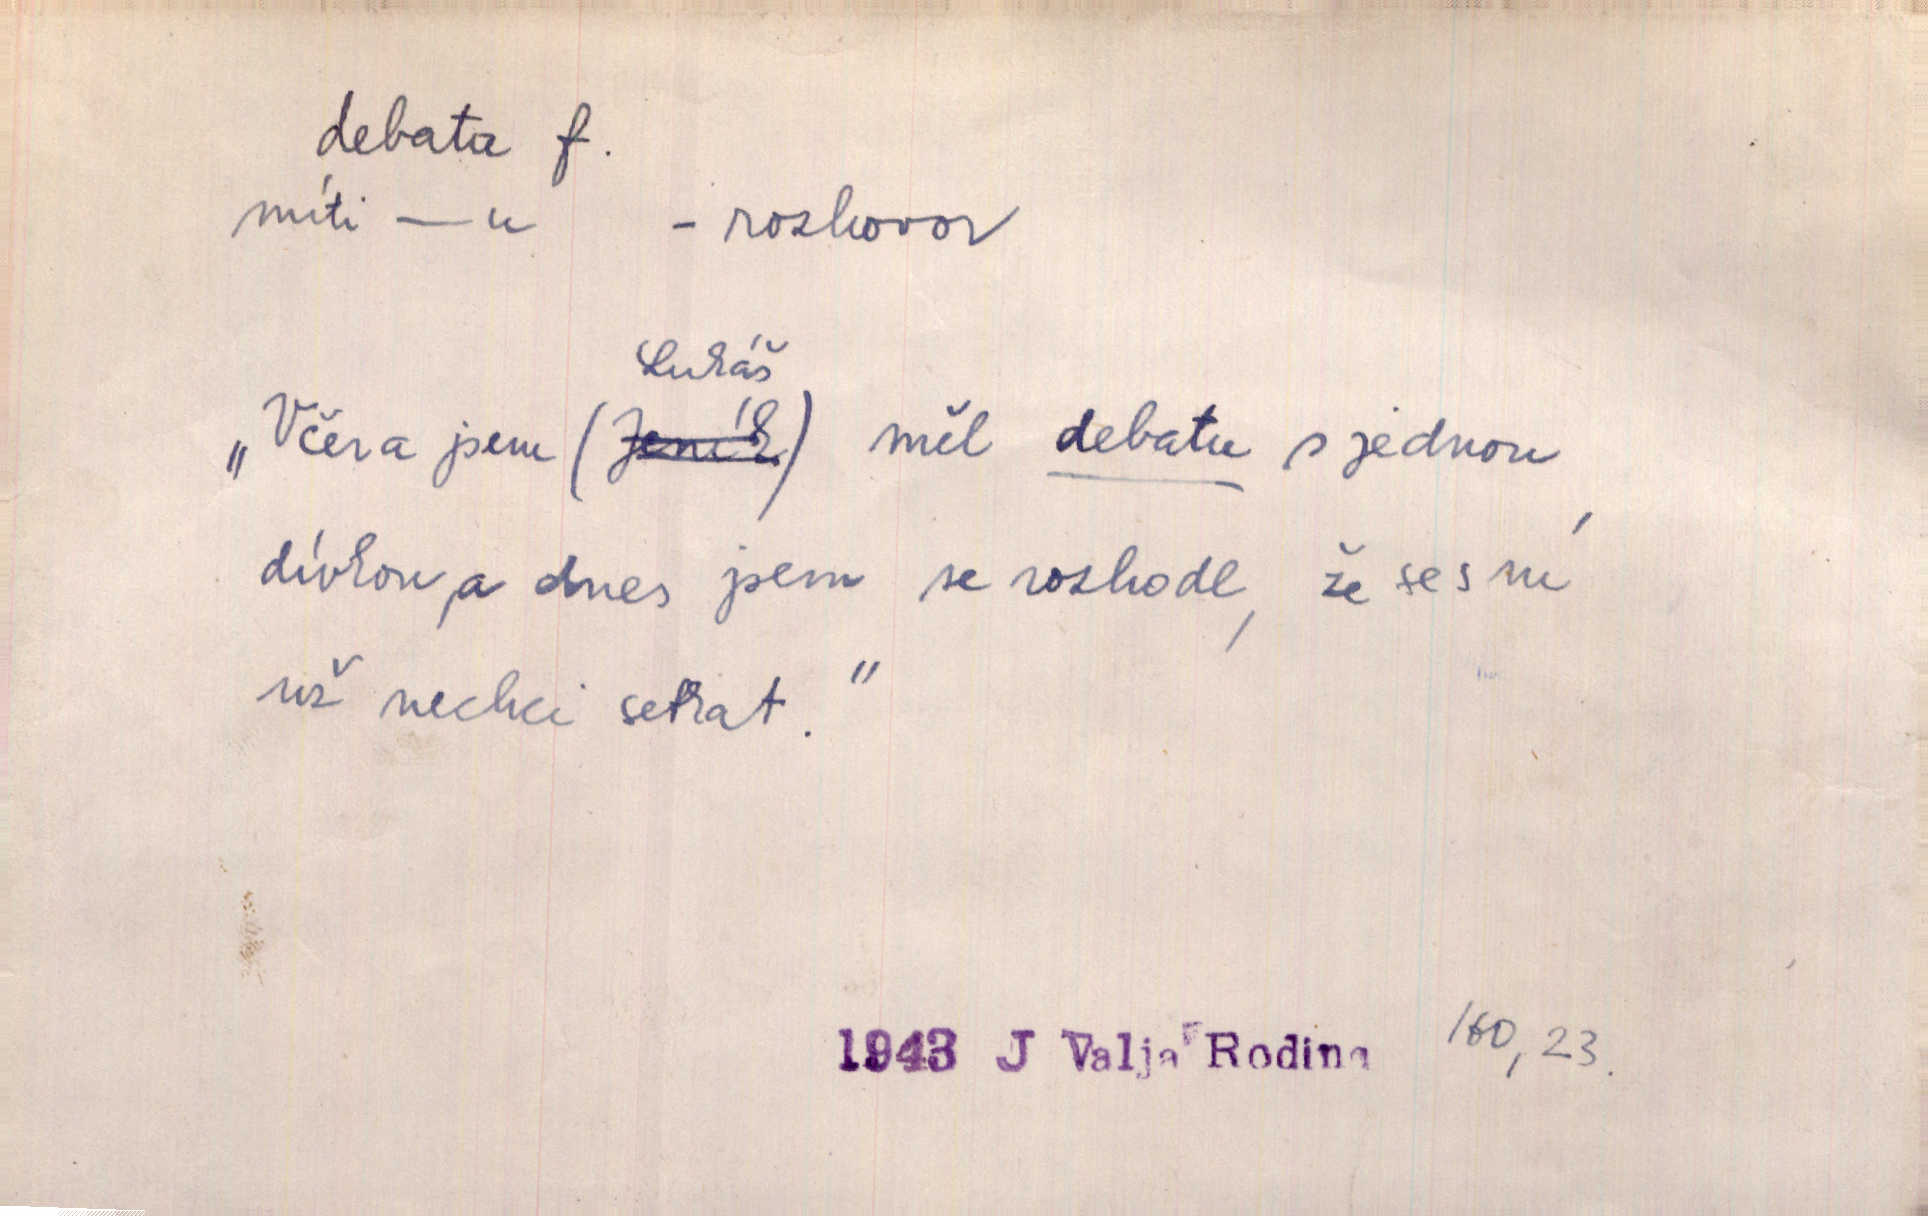 debata f.
míti — u - rozhovor
Lukáš
„Včera jsem (Jeník) měl debatu s jednou
dívkou, a dnes jsem se rozhodl, že se s ní
už nechci setkat."
1943 J Valja Rodina 160, 23.